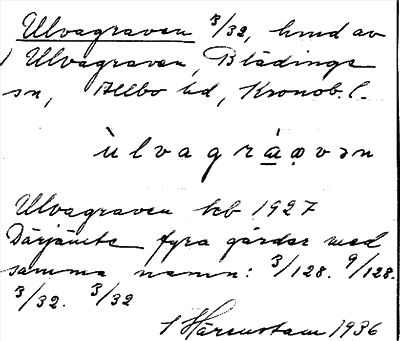 Ulvagraven 3/32, hmd av
1 Ulvagraven, Blädinge
sn, Allbo hd, Kronob. l.
ùlvagràavən
Ulvagraven kb 1927
Därjämte fyra gårdar med
samma namn: 3/128. 9/128.
3/32. 3/32
S Härenstam 1936